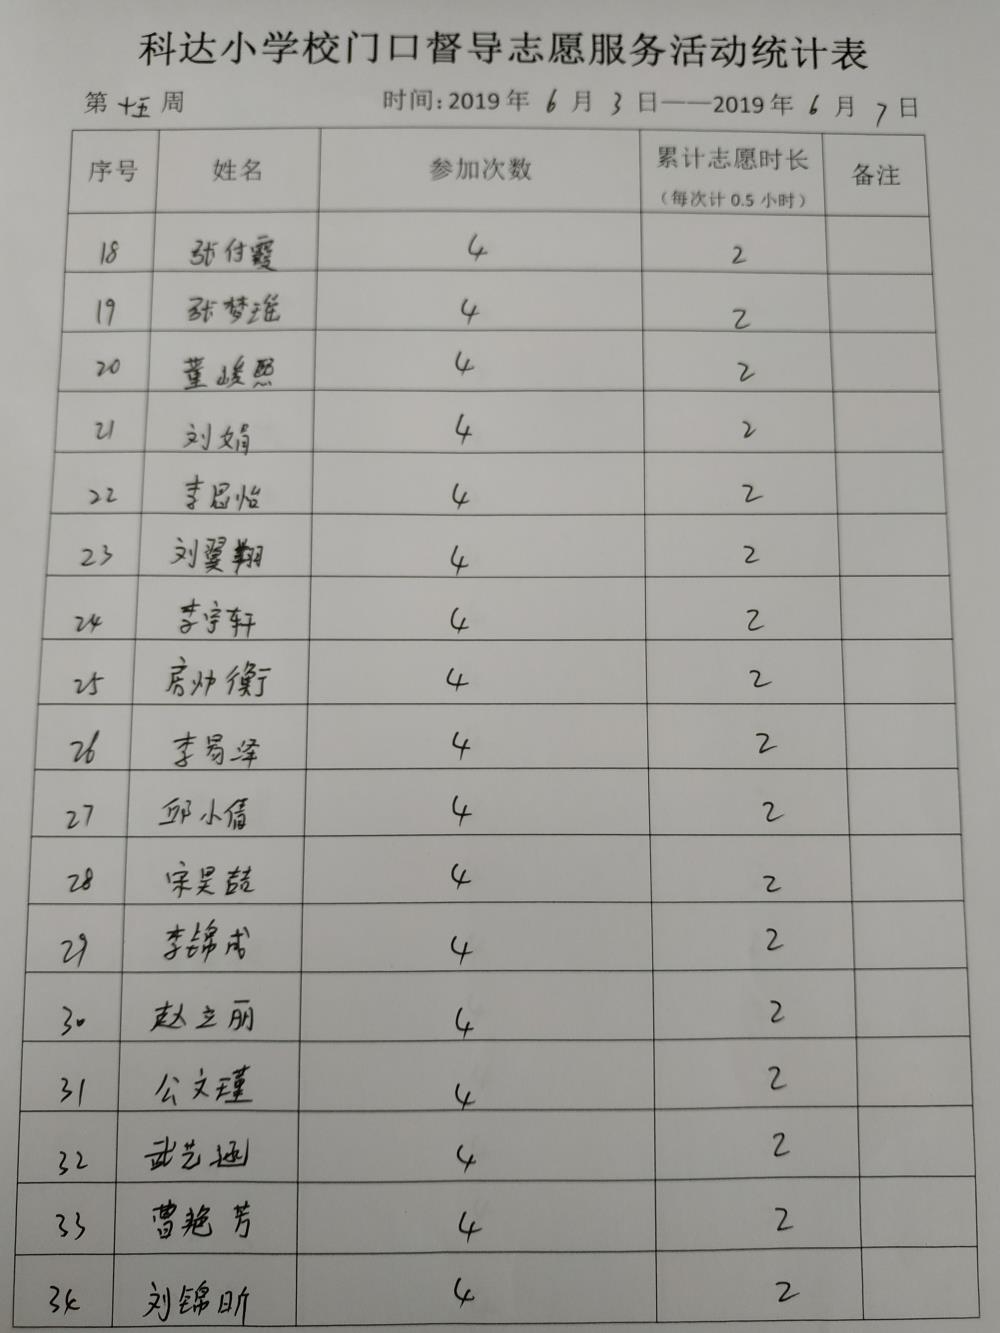 科达小学校门口督导志愿服务活动统计表
第 十五 周 时间: 2019 年 6 月 3 日——2019 年 6 月 7 日
序号 姓名 参加次数 累计志愿时长 备注
(每次计 0.5 小时)
18 张付霞 4 2
19 张梦瑶 4 2
20 董峻熙 4 2
21 刘娟 4 2
22 李思怡 4 2
23 刘翼翔 4 2
24 李宇轩 4 2
25 房帅衡 4 2
26 李易泽 4 2
27 邱小倩 4 2
28 宋昊喆 4 2
29 李锦成 4 2
30 赵立丽 4 2
31 公文瑾 4 2
32 武艺涵 4 2
33 曹艳芳 4 2
34 刘锦昕 4 2